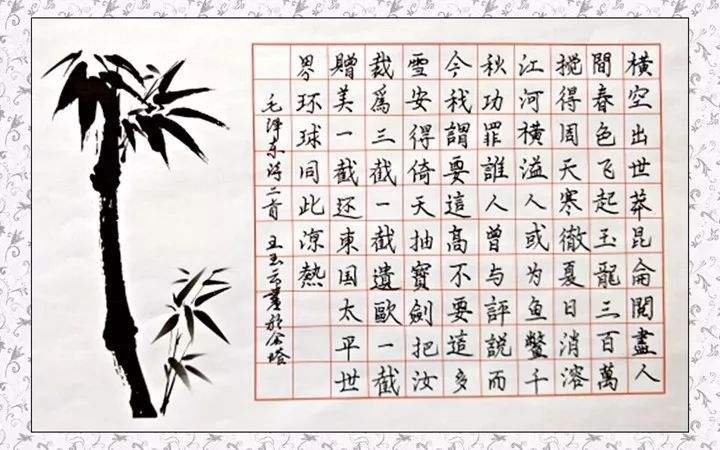 横空出世莽昆侖閱盡人
間春色飞起玉龍三百萬
搅得周天寒徹夏日消溶
江河横溢人或为鱼鳖千
秋功罪誰人曾与評説而
今我謂要這高不要這多
雪安得倚天抽寶劍把汝
裁爲三截一截遺歐一截
贈美一截还東国太平世
界环球同此凉熱
毛泽东詩二首 王玉云書於金塔